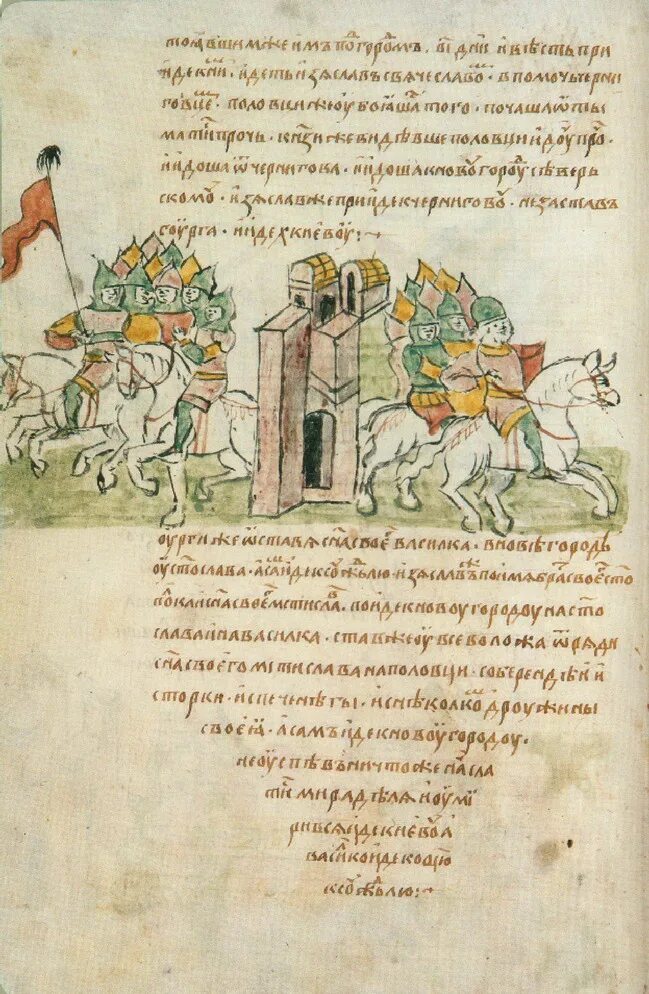 тоꙗвшимжеимъ по гороⷣмъ · ві дн҃и и вѣсть при
идекниⷨ · идеть изѧславъ свѧчеславоⷨ · в помочьчерни
говцеⷨ · половци же оубоꙗшаⷭ того · почаша ѿъи
мати прочь · кнѧзи же видѣвше половци идоу проⷱ ·
и идоша ѿ чернигова · и идоша к новоу гороⷣу сѣверь
скомоу · изѧслав же прииде к черниговоу · не заставъ
гюурга · иде х киевоу :~
оурги же ѡставѧ сн҃а своеⷢ василка · в новѣгородѣ
оу ст҃ослава · а саⷨ иде к соуⷤⷣлю изѧславъ поимѧ браⷮ своеⷢ ст҃о
полка и сн҃а своеⷢ мстислаⷡ · поиде к новоу городоу на ст҃о
слава и на василка · став же оу всеволожа ѿрѧди
сн҃а своего мстислава на половци · с берендѣи и
с торки · и с печенѣгы · и с нѣколкоⷨ дроужины
своеꙗ · а самъ иде к новоу городоу ·
не оуспѣвъ ничто же насла
ти мира дѣлѧ и оуми
ривсѧ иде киевоу а
васиⷧко иде ко ѿцю
к соуⷤⷣлю :~